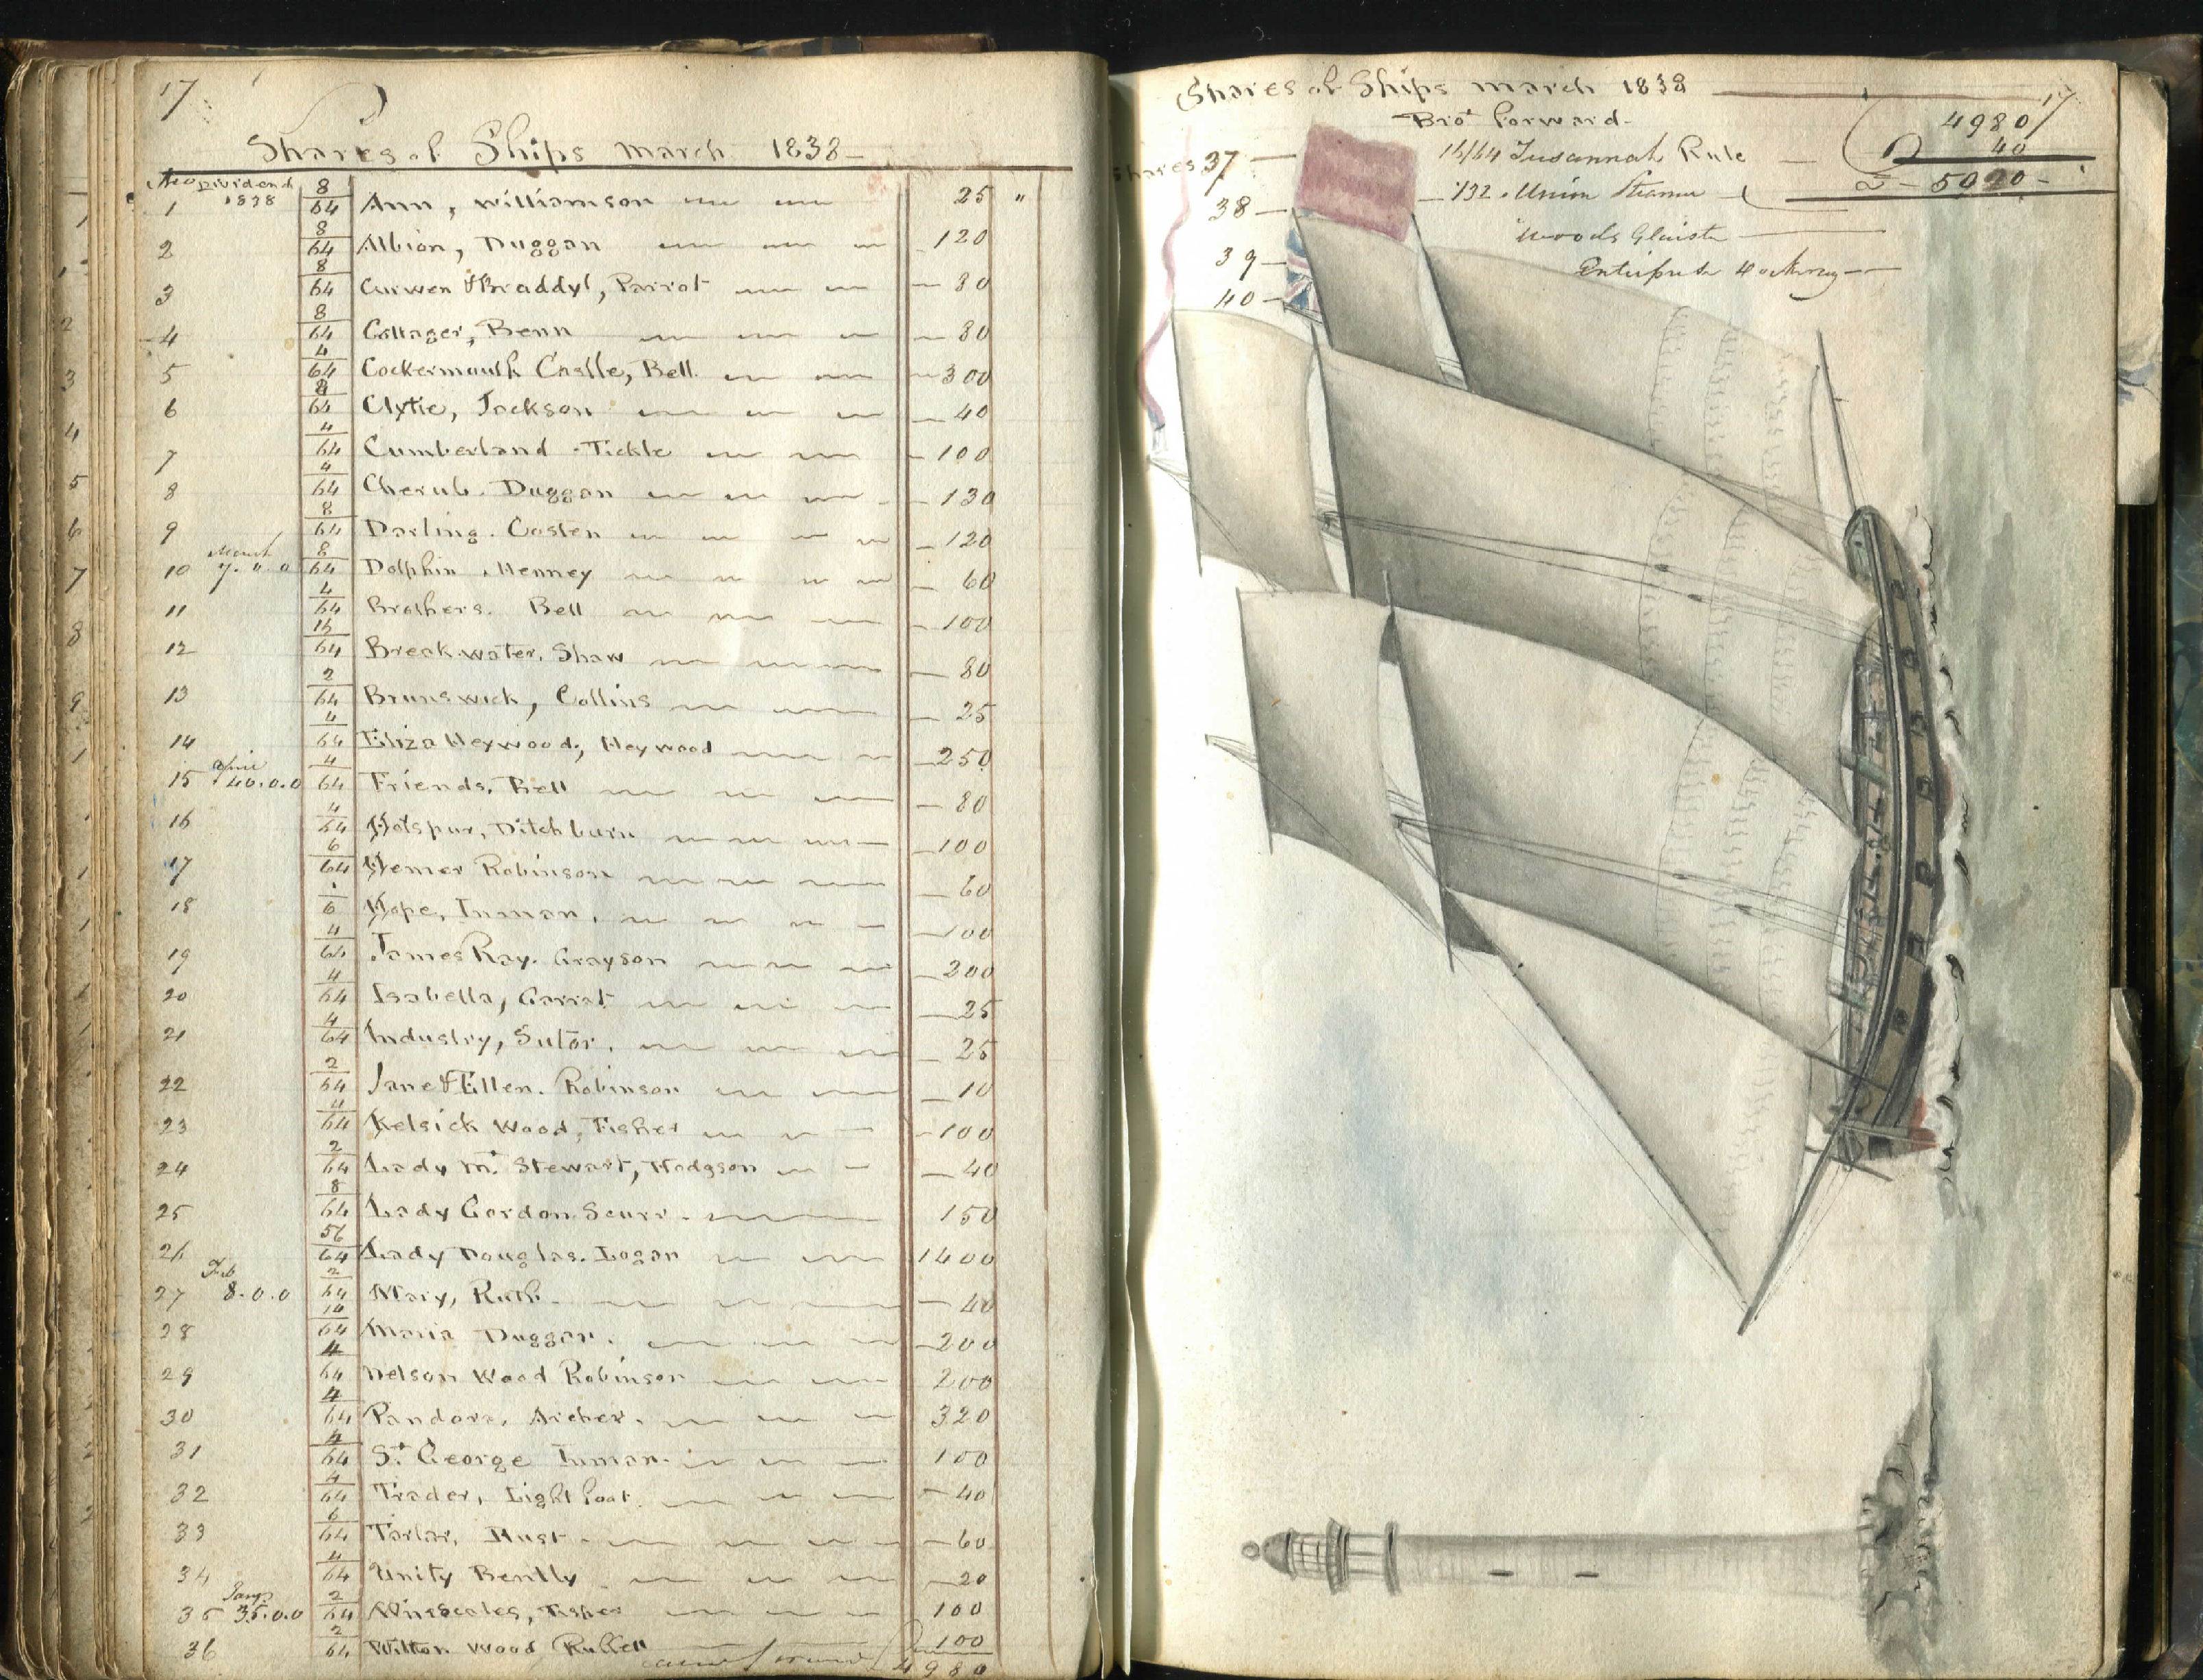 17
Shares of Ships march 1838
No Dividend
1 1838 8/64 Ann, Williamson 25 "
2 8/64 Albion, Duggan 120
3 8/64 Curwen & Braddyl, Parrot 80
4 8/64 Cottager, Benn 80
5 4/64 Cockermouth Castle, Bell 300
6 8/64 Clytie, Jackson 40
7 4/64 Cumberland Tickle 100
8 4/64 Cherub. Duggan 130
9 8/64 Darling. Costen 120
10 March 7.0.0 8/64 Dolphin, Menney 60
11 4/64 Brothers. Bell 100
12 16/64 Breakwater, Shaw 80
13 2/64 Brunswick, Collins 25
14 4/64 Eliza Heywood, Heywood 250
15 April 40.0.0 4/64 Friends, Bell 80
16 4/64 Hotspur, Ditchburn 100
17 6/64 Hemer Robinson 60
18 1/6 Hope, Inman, 100
19 4/64 James Ray. Grayson 200
20 4/64 Isabella, Garrat 25
21 4/64 Industry, Sutor. 25
22 2/64 Jane & Ellen. Robinson 10
23 4/64 Kelsick Wood, Fisher 100
24 2/64 Lady M. Stewart, Hodgson 40
25 8/64 Lady Gordon Scurr 150
26 56/64 Lady Douglas. Logan 1400
27 Feb 8.0.0 2/64 Mary, Ruth 40
28 10/64 Maria Duggan. 200
29 4/64 Nelson Wood Robinson 200
30 4/64 Pandora, Archer. 320
31 4/64 St George Inman 100
32 4/64 Trader, Lightfoot 40
33 6/64 Tartar, Hust 60
34 4/64 Unity Bently 20
35 Jany 35.0.0 2/64 Winscales, Fisher 100
36 2/64 Wilton Wood Russell 100
4980
Shares of Ships march 1838 17
Brot forward 4980
Shares 37 16/64 Susannah Rule 40
38 132 Union Steamer 5020
39 Woods Glaister
40 Enterprise